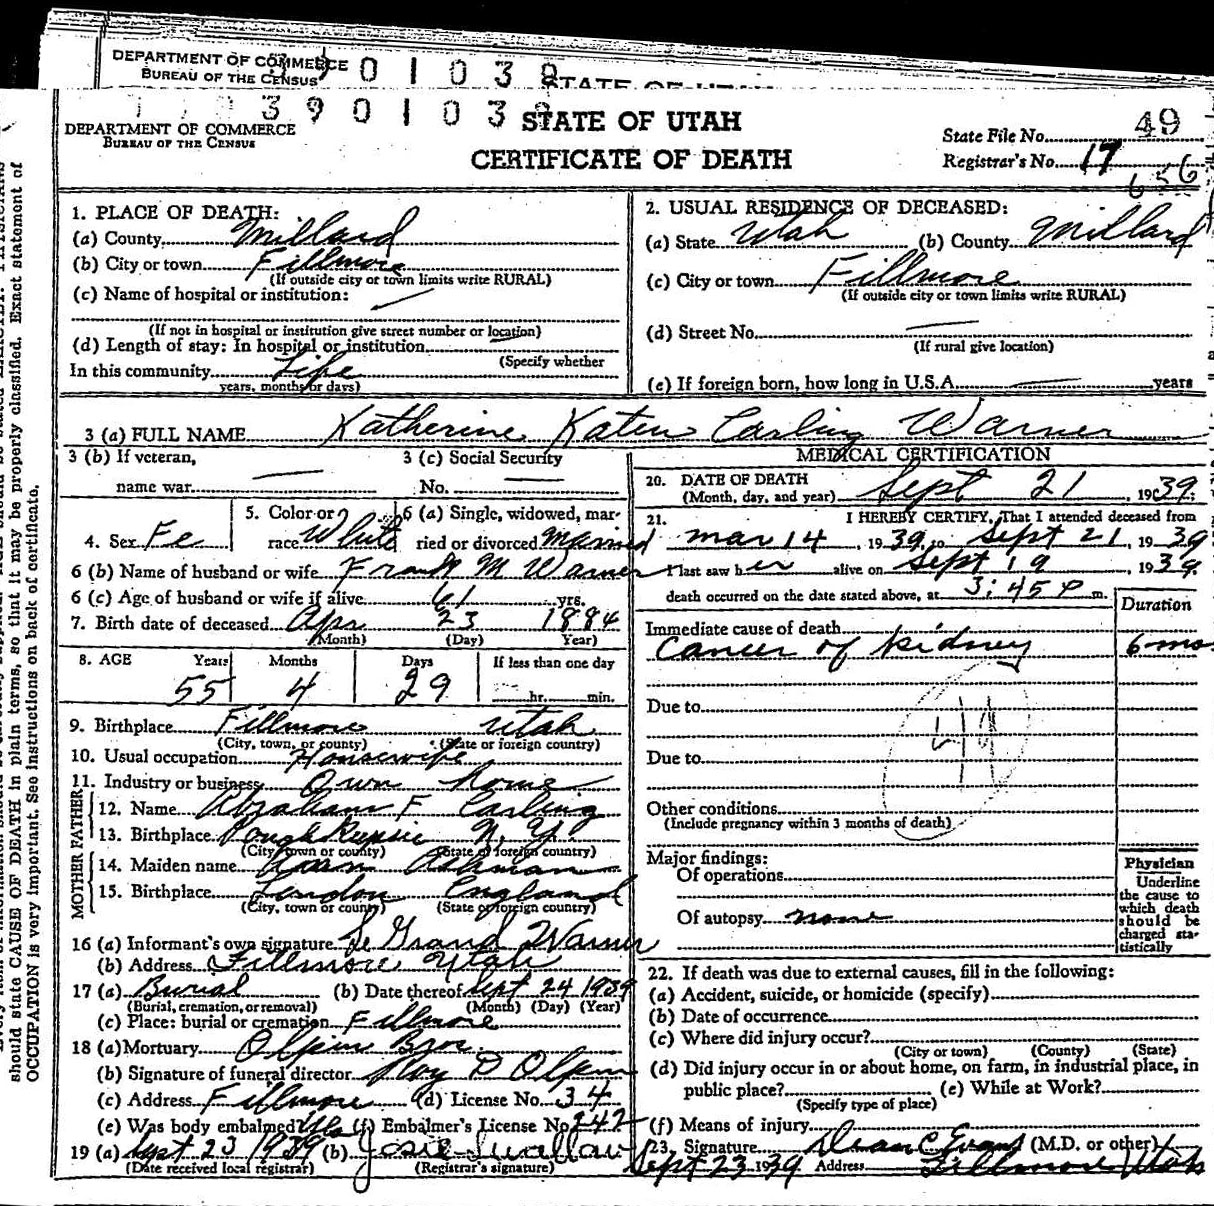 DEPARTMENT OF COMMERCE
BUREAU OF THE CENSUS
0 1 0 3 9
STATE OF UTAH
3 9 0 1 0 3 9
DEPARTMENT OF COMMERCE
BUREAU OF THE CENSUS
STATE OF UTAH
CERTIFICATE OF DEATH
State File No. 49
Registrar's No. 17
656
should state CAUSE OF DEATH in plain terms, so that it may be properly classified. Exact statement of
OCCUPATION is very important. See instructions on back of certificate.
1. PLACE OF DEATH:
(a) County Millard
(b) City or town Fillmore
(If outside city or town limits write RURAL)
(c) Name of hospital or institution: —
(If not in hospital or institution give street number or location)
(d) Length of stay: In hospital or institution —
(Specify whether
In this community Life
years, months or days)
2. USUAL RESIDENCE OF DECEASED:
(a) State Utah (b) County Millard
(c) City or town Fillmore
(If outside city or town limits write RURAL)
(d) Street No. —
(If rural give location)
(e) If foreign born, how long in U.S.A. — years
3 (a) FULL NAME Katherine Katen Carling Warner
3 (b) If veteran,
name war —
3 (c) Social Security
No. —
4. Sex Fe
5. Color or
race White
6 (a) Single, widowed, mar-
ried or divorced Married
6 (b) Name of husband or wife Frank M Warner
6 (c) Age of husband or wife if alive 61 yrs.
7. Birth date of deceased Apr 23 1884
(Month) (Day) Year)
8. AGE Years Months Days If less than one day
55 4 29 hr. min.
9. Birthplace Fillmore Utah
(City, town, or county) (State or foreign country)
10. Usual occupation Housewife
11. Industry or business Own home
FATHER
12. Name Abraham F Carling
13. Birthplace PoughKepsie N.Y.
(City, town or county) (State of foreign country)
MOTHER
14. Maiden name Ashman
15. Birthplace London England
(City, town or county) (State or foreign country)
16 (a) Informant's own signature Le Grand Warner
(b) Address Fillmore Utah
17 (a) Burial (b) Date thereof Sept 24 1939
(Burial, cremation, or removal) (Month) (Day) (Year)
(c) Place: burial or cremation Fillmore
18 (a) Mortuary Olpin Bros.
(b) Signature of funeral director Roy D Olpin
(c) Address Fillmore (d) License No. 34
(e) Was body embalmed Yes (f) Embalmer's License No. 242
19 (a) Sept 23 1939 (b) Josie Swallow
(Date received local registrar) (Registrar's signature)
MEDICAL CERTIFICATION
20. DATE OF DEATH
(Month, day, and year) Sept 21, 1939.
21. I HEREBY CERTIFY, That I attended deceased from
Mar 14, 1939, to Sept 21, 1939
I last saw her alive on Sept 19, 1939.
death occurred on the date stated above, at 3:45 P m.
Duration
Immediate cause of death
Cancer of kidney 6 mos
Due to
Due to
Other conditions
(Include pregnancy within 3 months of death)
Major findings:
Of operations
Of autopsy none
Physician
Underline
the cause to
which death
should be
charged sta-
tistically
22. If death was due to external causes, fill in the following:
(a) Accident, suicide, or homicide (specify)
(b) Date of occurrence
(c) Where did injury occur?
(City or town) (County) (State)
(d) Did injury occur in or about home, on farm, in industrial place, in
public place? (e) While at Work?
(Specify type of place)
(f) Means of injury
23. Signature Dean C Evans (M.D. or other)
Sept 23 1939 Address Fillmore Utah